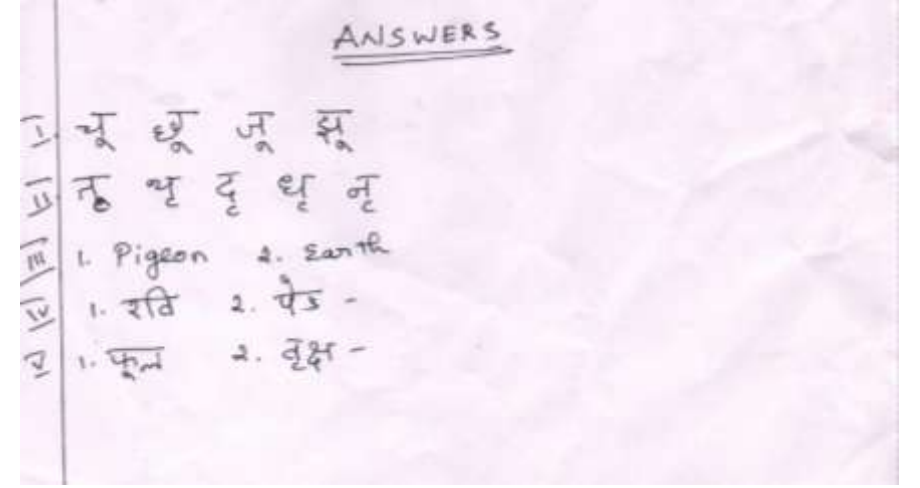 ANSWERS
I. चू छू जू झू
II. तृ थृ दृ धृ नृ
III 1. Pigeon 2. Earth
IV 1. रवि 2. पेड -
V 1. फूल 2. वृक्ष -